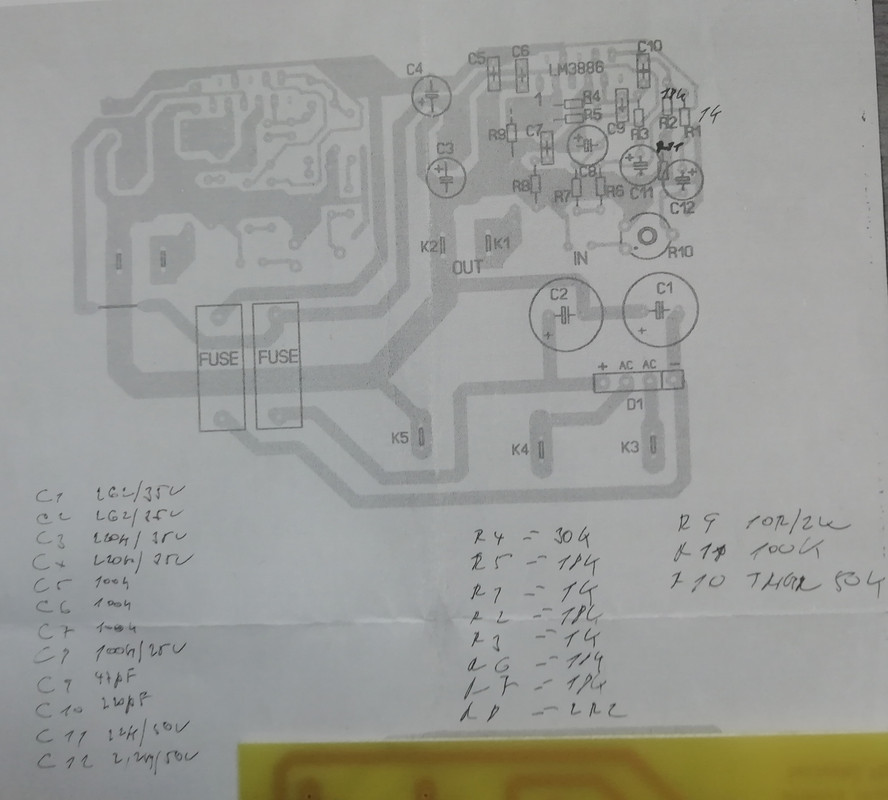 C4
C5
C6
LM3886
C10
18k
1k
1
R4
R5
C9
R3
R2
R1
R9
C7
C3
R8
C8
R7
R6
C11
C12
K2
K1
OUT
IN
R10
C2
C1
FUSE
FUSE
+ AC AC -
D1
K5
K4
K3
C1 2G2/35V
C2 2G2/35V
C3 220µ/35V
C4 220µ/35V
C5 100n
C6 100n
C7 100n
C8 100µ/25V
C9 47pF
C10 220pF
C11 22µ/50V
C12 2,2µ/50V
R4 - 30k
R5 - 18k
R1 - 1k
R2 - 18k
R3 - 1k
R6 - 18k
R7 - 18k
R8 - 2R2
R9 10R/2W
100k
R10 50k